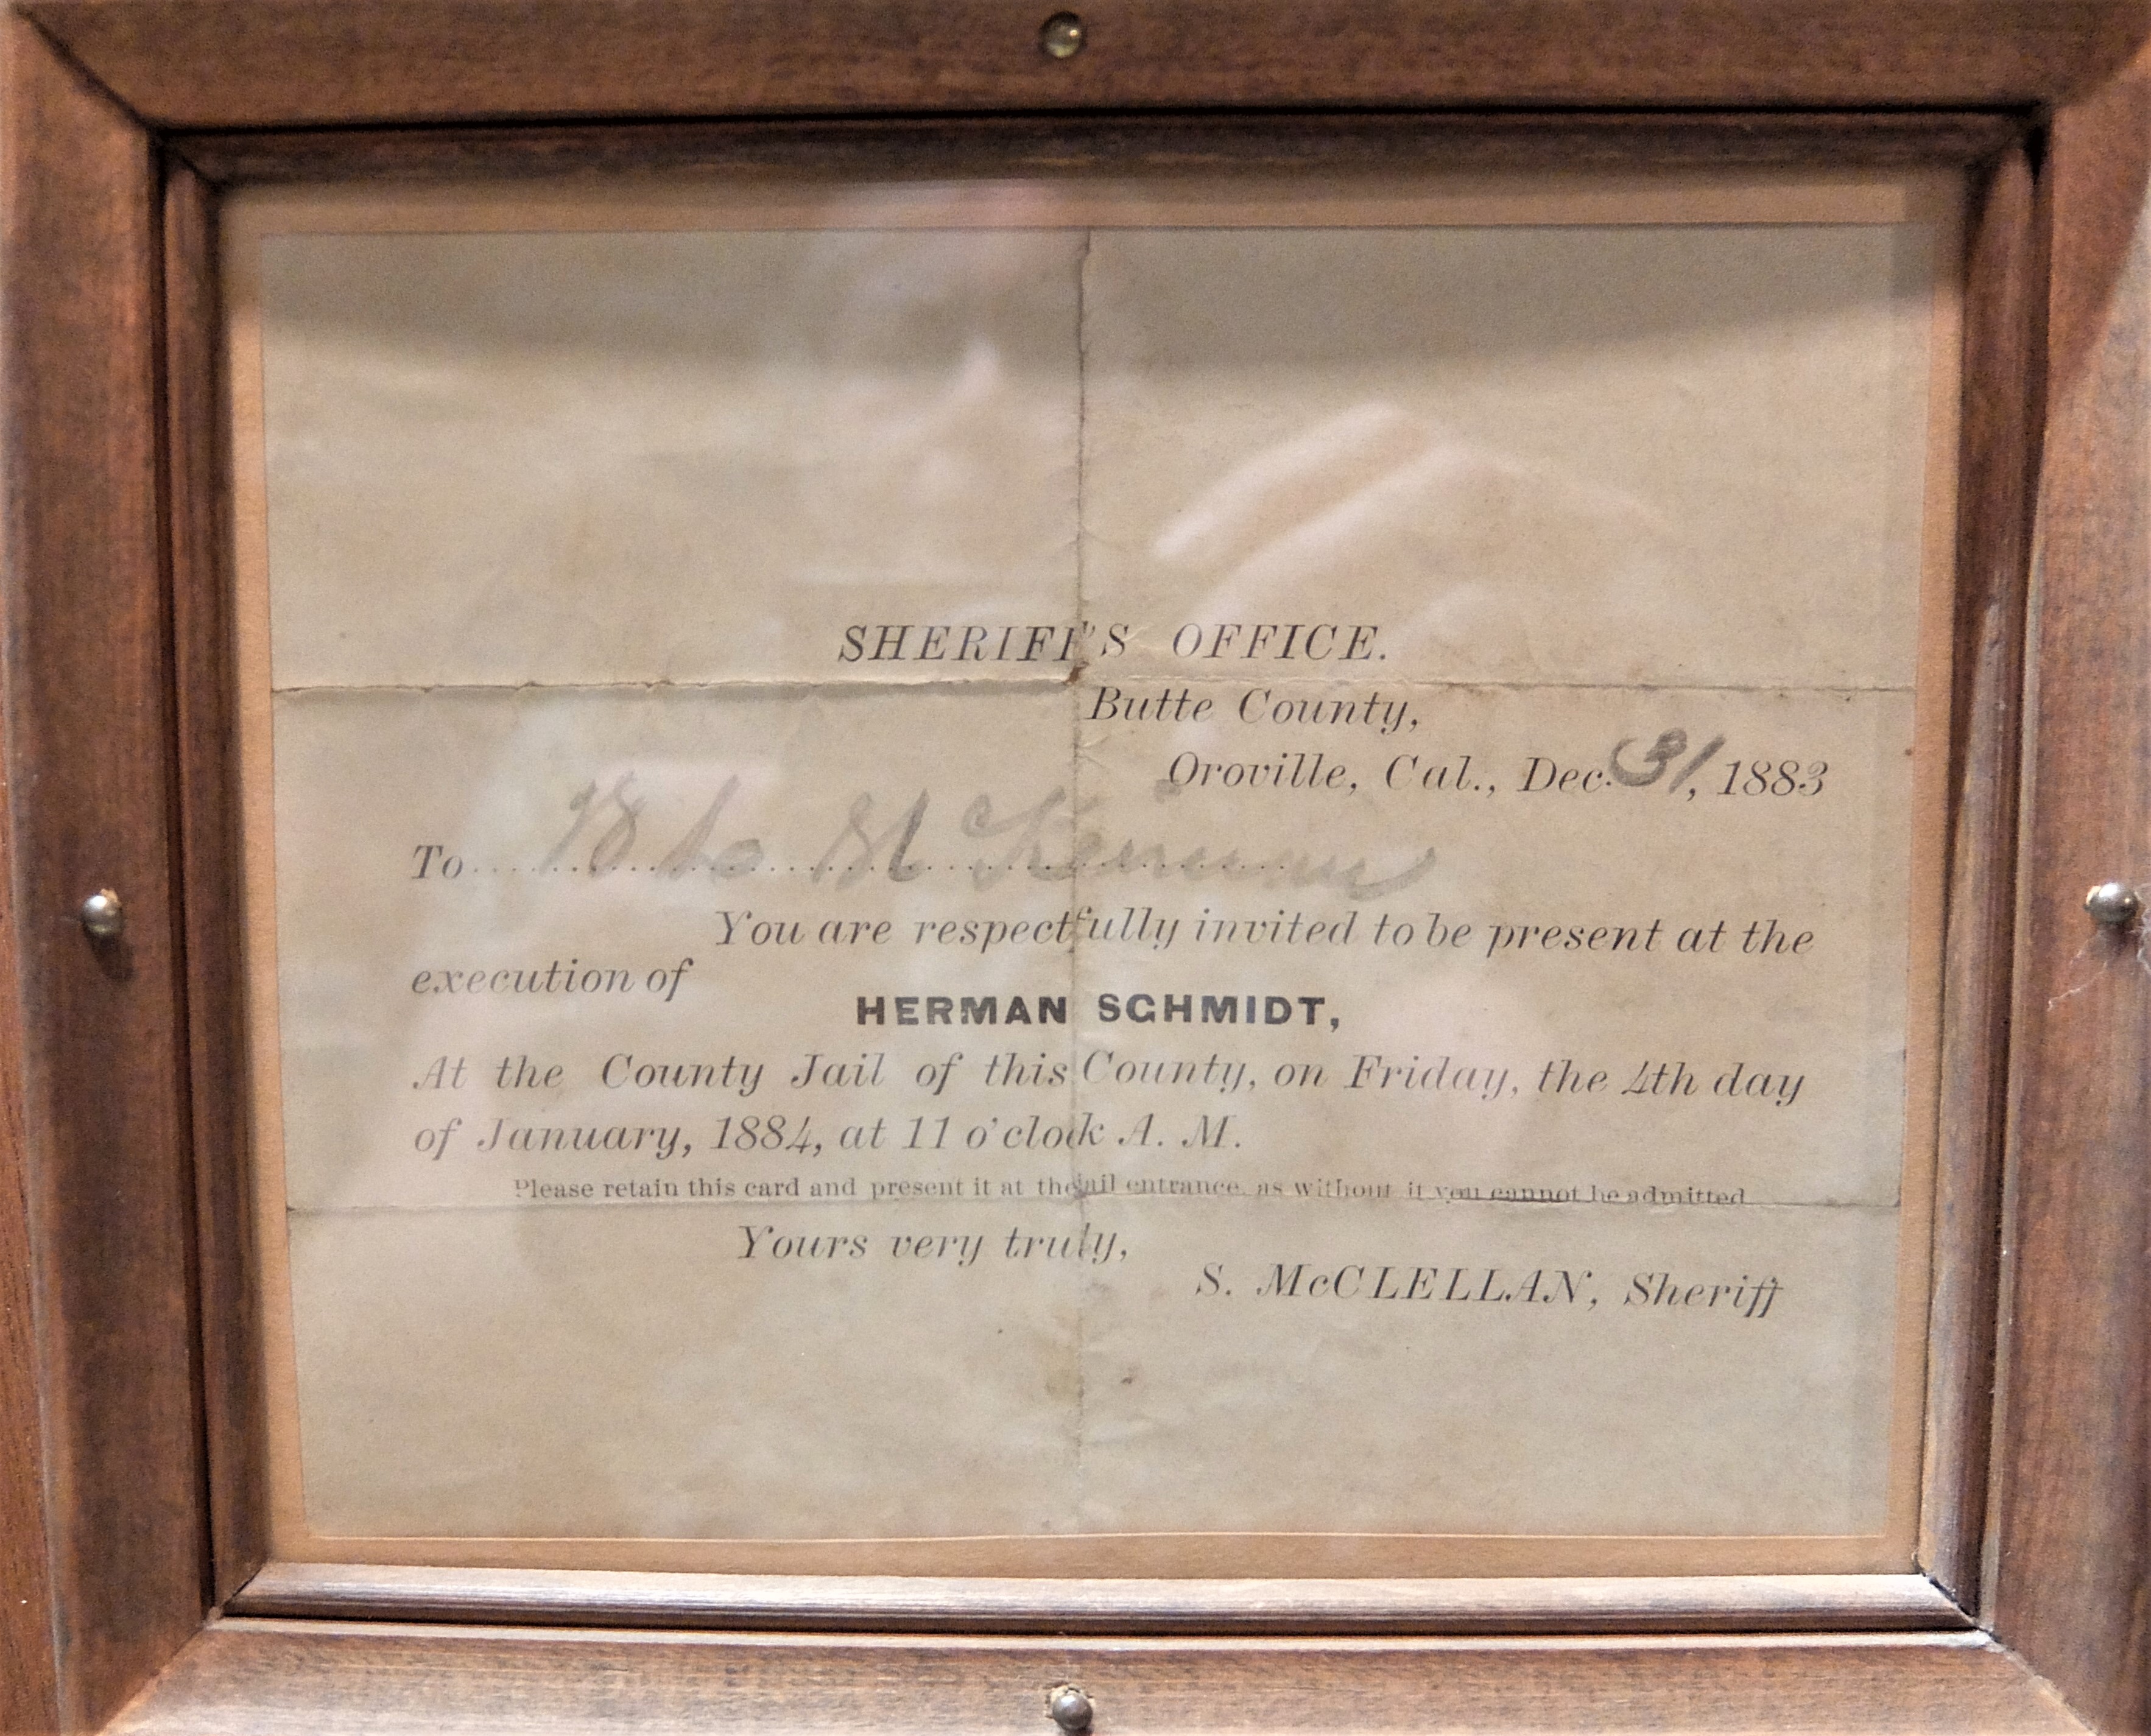 SHERIFF'S OFFICE.
Butte County,
Oroville, Cal., Dec. 31, 1883
To
You are respectfully invited to be present at the
execution of
HERMAN SCHMIDT,
At the County Jail of this County, on Friday, the 4th day
of January, 1884, at 11 o'clock A. M.
Please retain this card and present it at the jail entrance, as without it you cannot be admitted
Yours very truly,
S. McCLELLAN, Sheriff